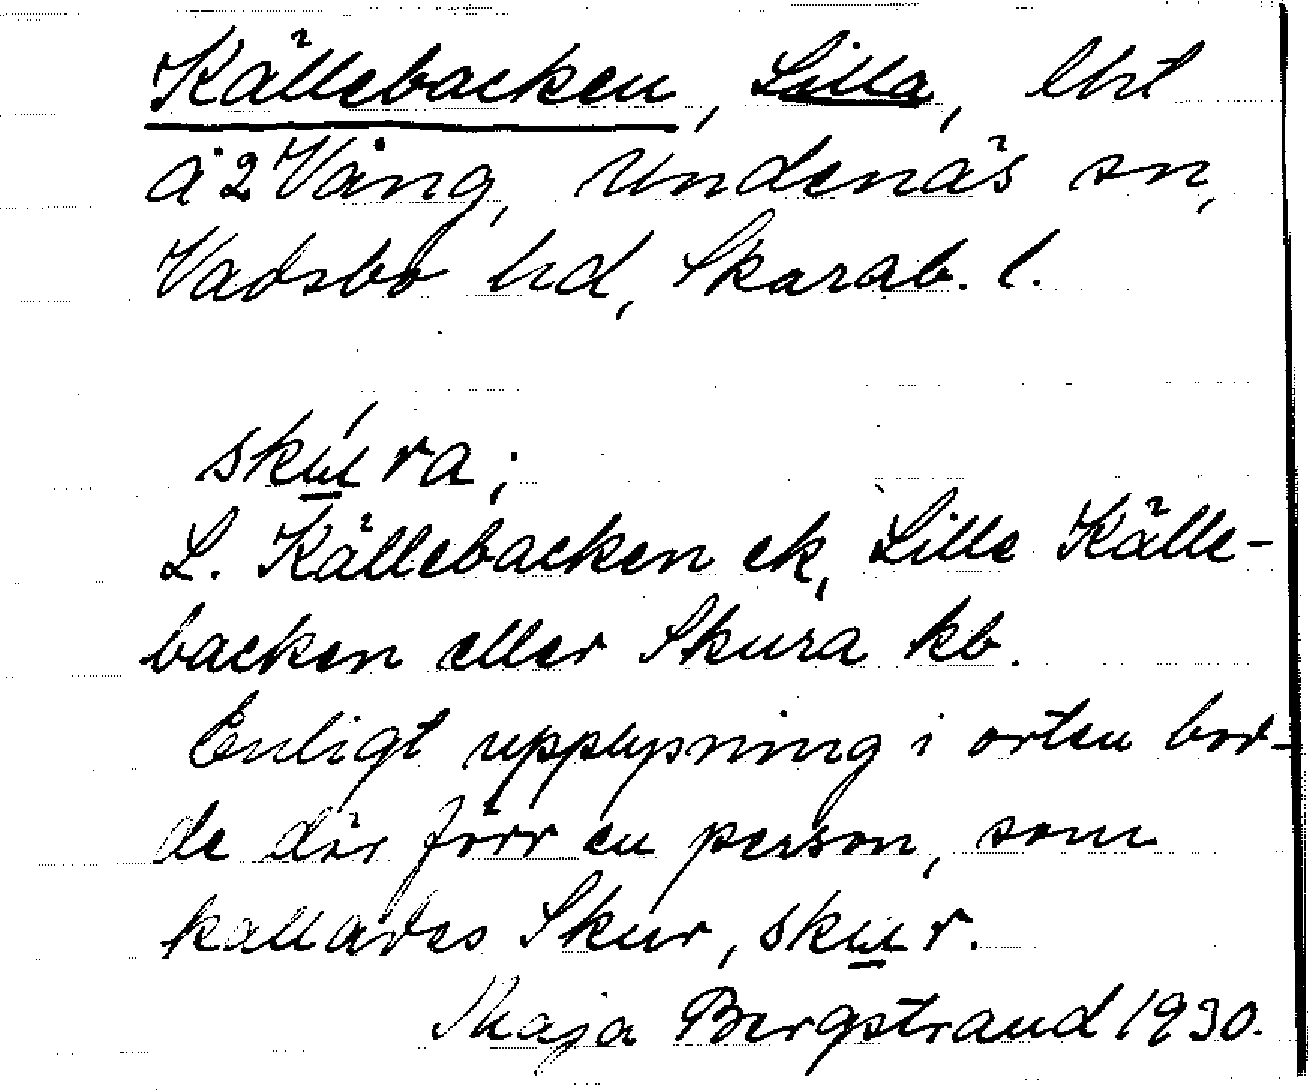 Källebacken, Lilla, lht
å 2 Vång, Undenäs sn,
Vadsbo hd, Skarab. l.
skúra;
L. Källebacken ek, Lille Källe-
backen eller Skura kb.
Enligt upplysning i orten bod-
de där förr en person, som
kallades Skur, skur.
Maja Bergstrand 1930.